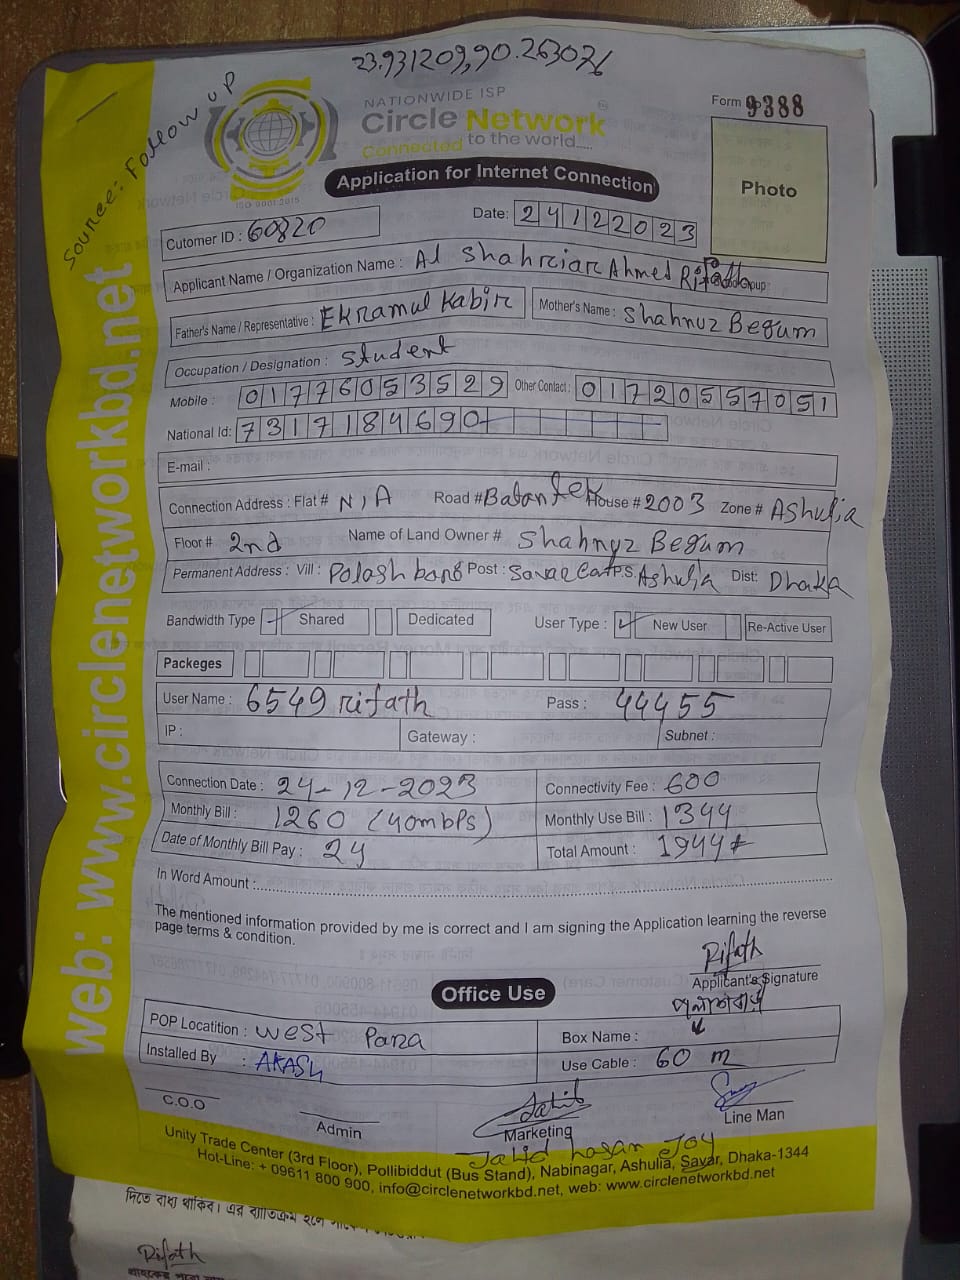 23.931209,90.263076
Source: Follow uP
NATIONWIDE ISP
Circle Network
Connected to the world.....
ISO 9001:2015
Form 9388
Photo
Application for Internet Connection
Cutomer ID : 60820
Date: 24122023
Applicant Name / Organization Name : Al Shahriar Ahmed Rifath
Father's Name / Representative : Ekramul Kabir Mother's Name : Shahnuz Begum
Occupation / Designation : Student
Mobile : 01776053529 Other Contact : 01720557051
National Id: 7317184690
E-mail :
Connection Address : Flat # N/A Road # Batantek House # 2003 Zone # Ashulia
Floor # 2nd Name of Land Owner # Shahnuz Begum
Permanent Address : Vill : Polashbari Post : Savar Cant P.S. Ashulia Dist: Dhaka
Bandwidth Type Shared Dedicated User Type : New User Re-Active User
Packeges
User Name : 6549 rifath Pass : 44455
IP : Gateway : Subnet :
Connection Date : 24-12-2023 Connectivity Fee : 600
Monthly Bill : 1260 (40mbps) Monthly Use Bill : 1344
Date of Monthly Bill Pay : 24 Total Amount : 1944
In Word Amount :
The mentioned information provided by me is correct and I am signing the Application learning the reverse
page terms & condition.
Rifath
Applicant's Signature
পলাশবাড়ী
Office Use
POP Locatition : West Para Box Name :
Installed By : AKASH Use Cable : 60 m
C.O.O Admin Marketing Line Man
Jahid hasan Joy
Unity Trade Center (3rd Floor), Pollibiddut (Bus Stand), Nabinagar, Ashulia, Savar, Dhaka-1344
Hot-Line: + 09611 800 900, info@circlenetworkbd.net, web: www.circlenetworkbd.net
web: www.circlenetworkbd.net
দিতে বাধ্য থাকিব। এর ব্যতিক্রম হলে
Rifath